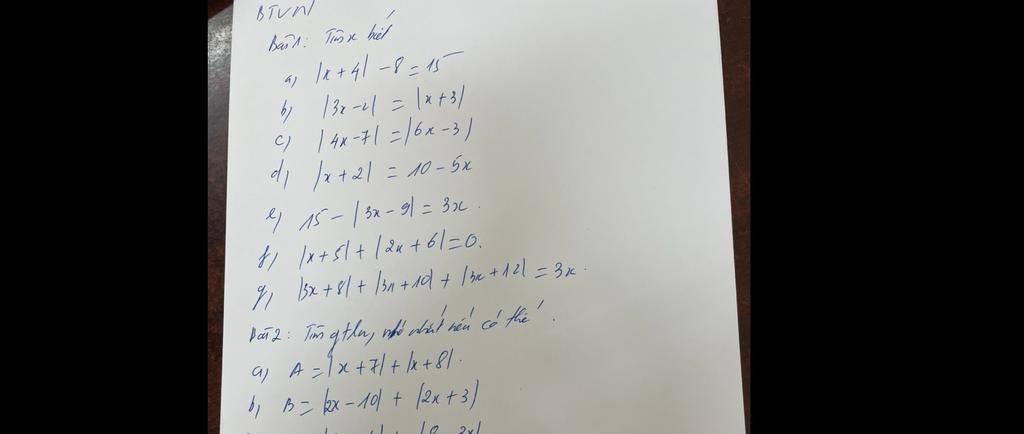 BTVN
Bài 1: Tìm x biết
a) |x + 4| - 8 = 15
b) |3x - 2| = |x + 3|
c) |4x - 7| = |6x - 3|
d) |x + 2| = 10 - 5x
e) 15 - |3x - 9| = 3x.
f) |x + 5| + |2x + 6| = 0.
g) |3x + 8| + |3x + 10| + |3x + 12| = 3x.
Bài 2: Tìm gtln, nhỏ nhất nếu có thể.
a) A = |x + 7| + |x + 8|.
b) B = |2x - 10| + |2x + 3|